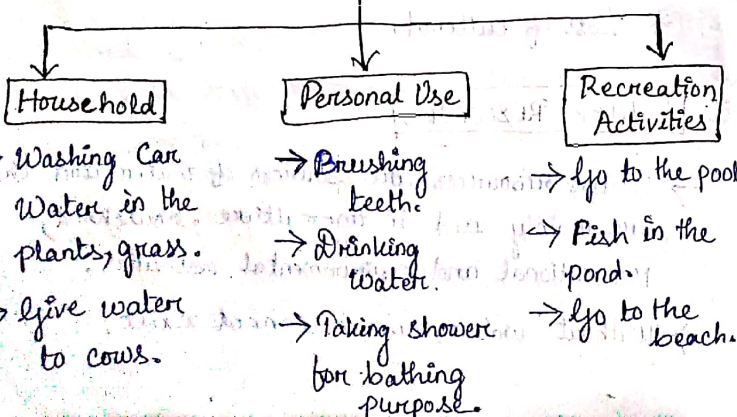 Household
Washing Car
Water in the
plants, grass.
→ Give water
to cows.
Personal Use
→ Brushing
teeth.
→ Drinking
Water.
→ Taking shower
for bathing
purpose.
Recreation
Activities
→ Go to the pool
→ Fish in the
pond.
→ Go to the
beach.